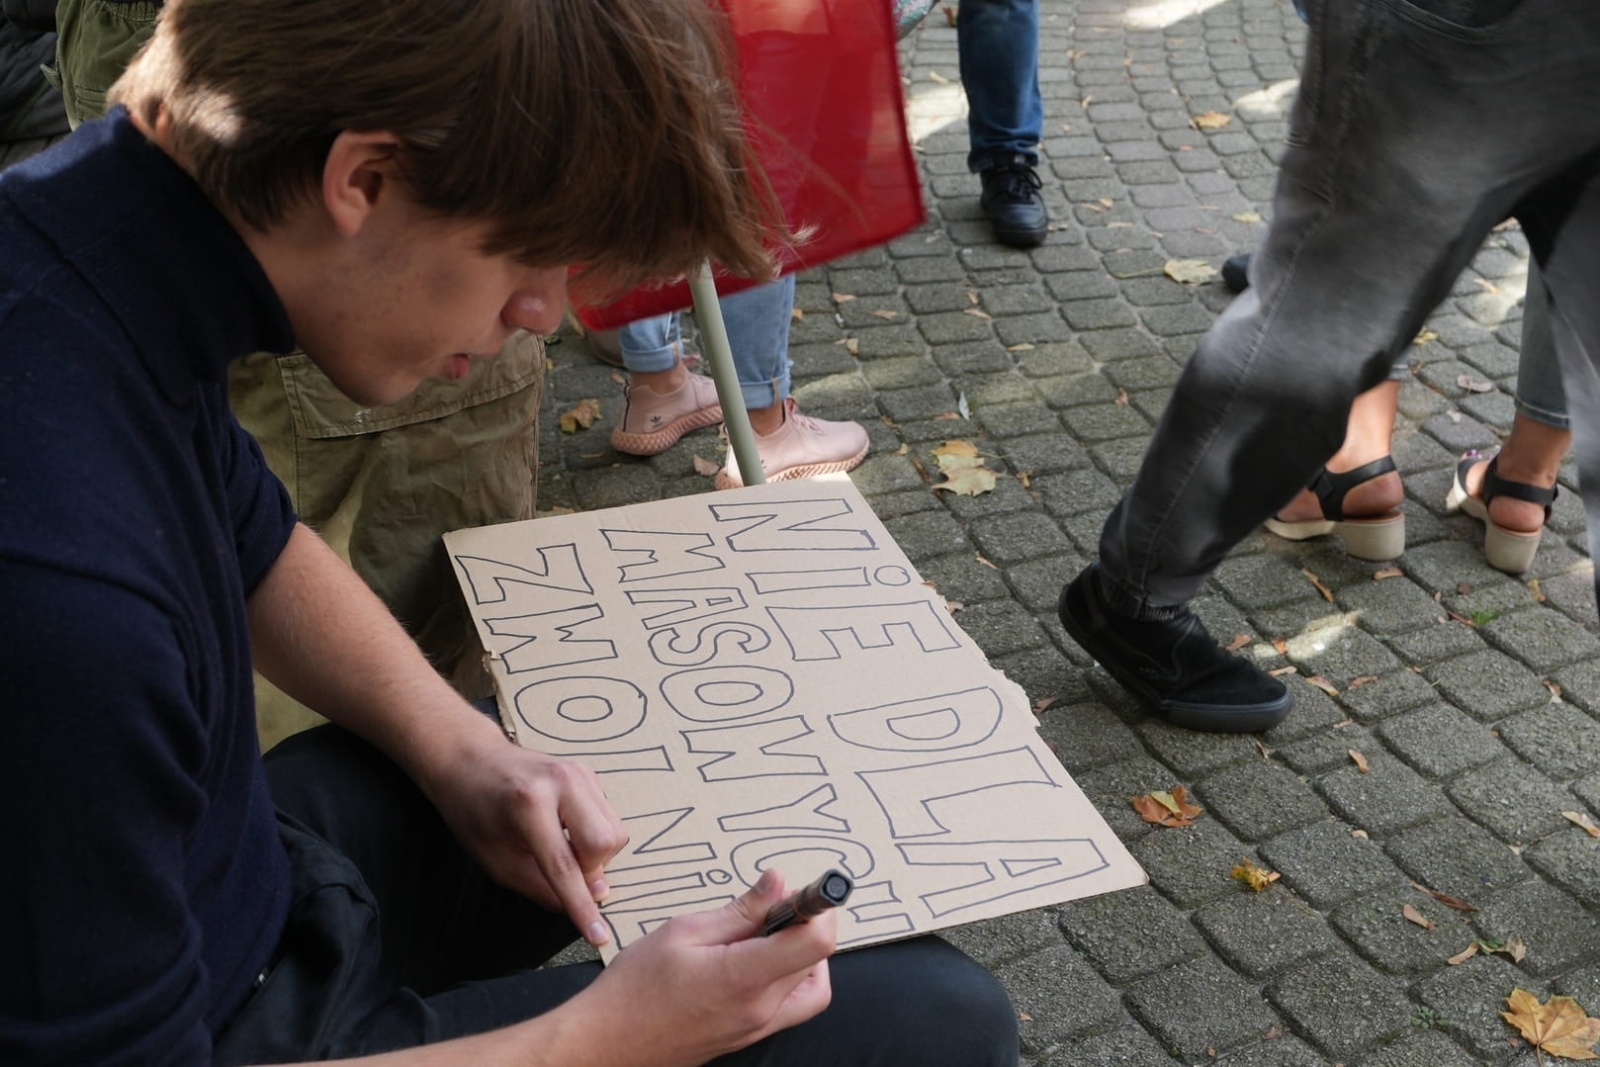 NiE DLA
MASOWYCH
ZWOLNiE